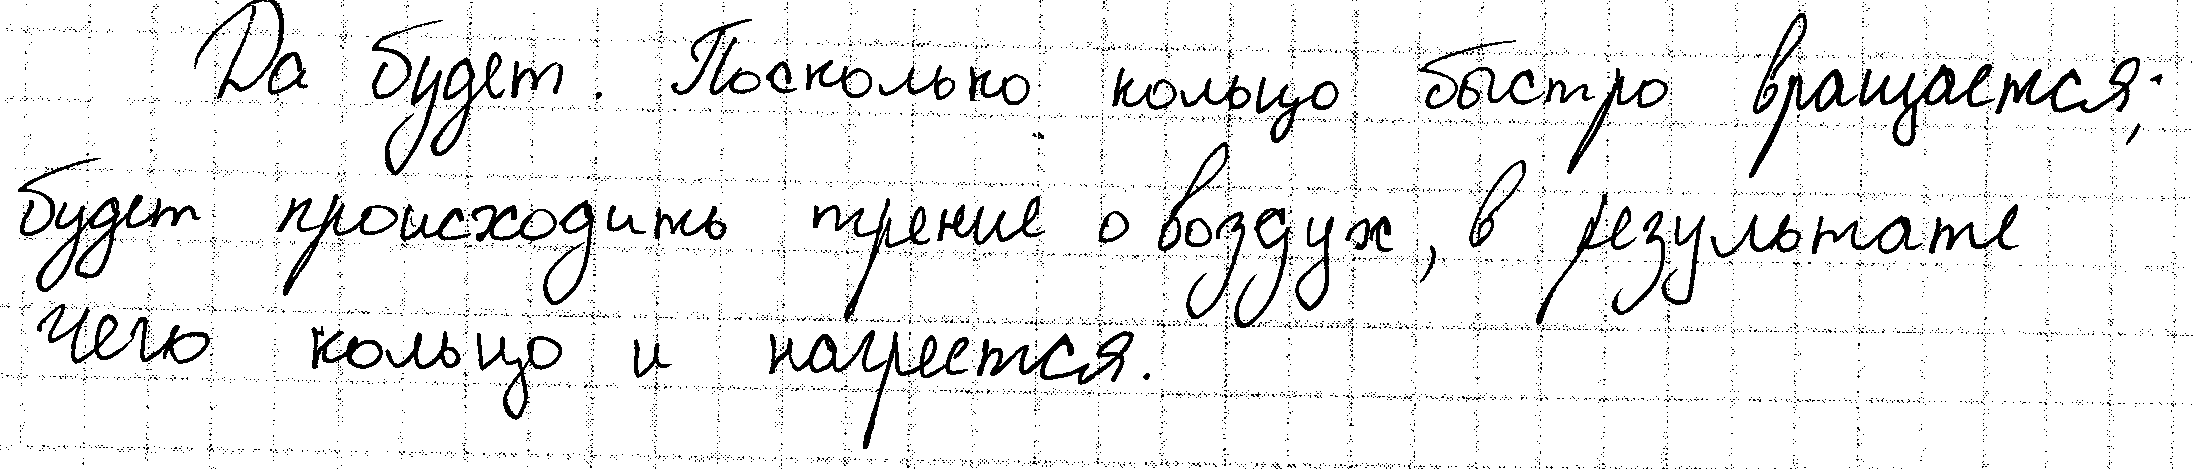 Да будет. Поскольку кольцо быстро вращается,
будет происходить трение о воздух, в результате
чего кольцо и нагреется.